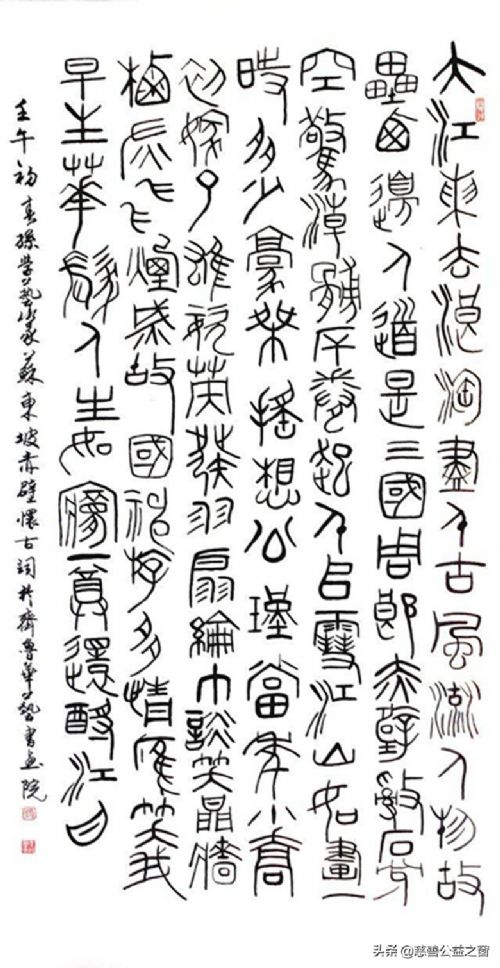 大江東去浪淘盡千古風流人物故
壘西邊人道是三國周郎赤壁亂石穿
空驚濤拍岸卷起千堆雪江山如畫一
時多少豪傑遙想公瑾當年小喬
初嫁了雄姿英發羽扇綸巾談笑間檣
櫓灰飛煙滅故國神游多情應笑我
早生華髮人生如夢一尊還酹江月
壬午初春孫学藝蘇東坡赤壁懷古詞於齊魯藝書画院
头条 @慈善公益之窗